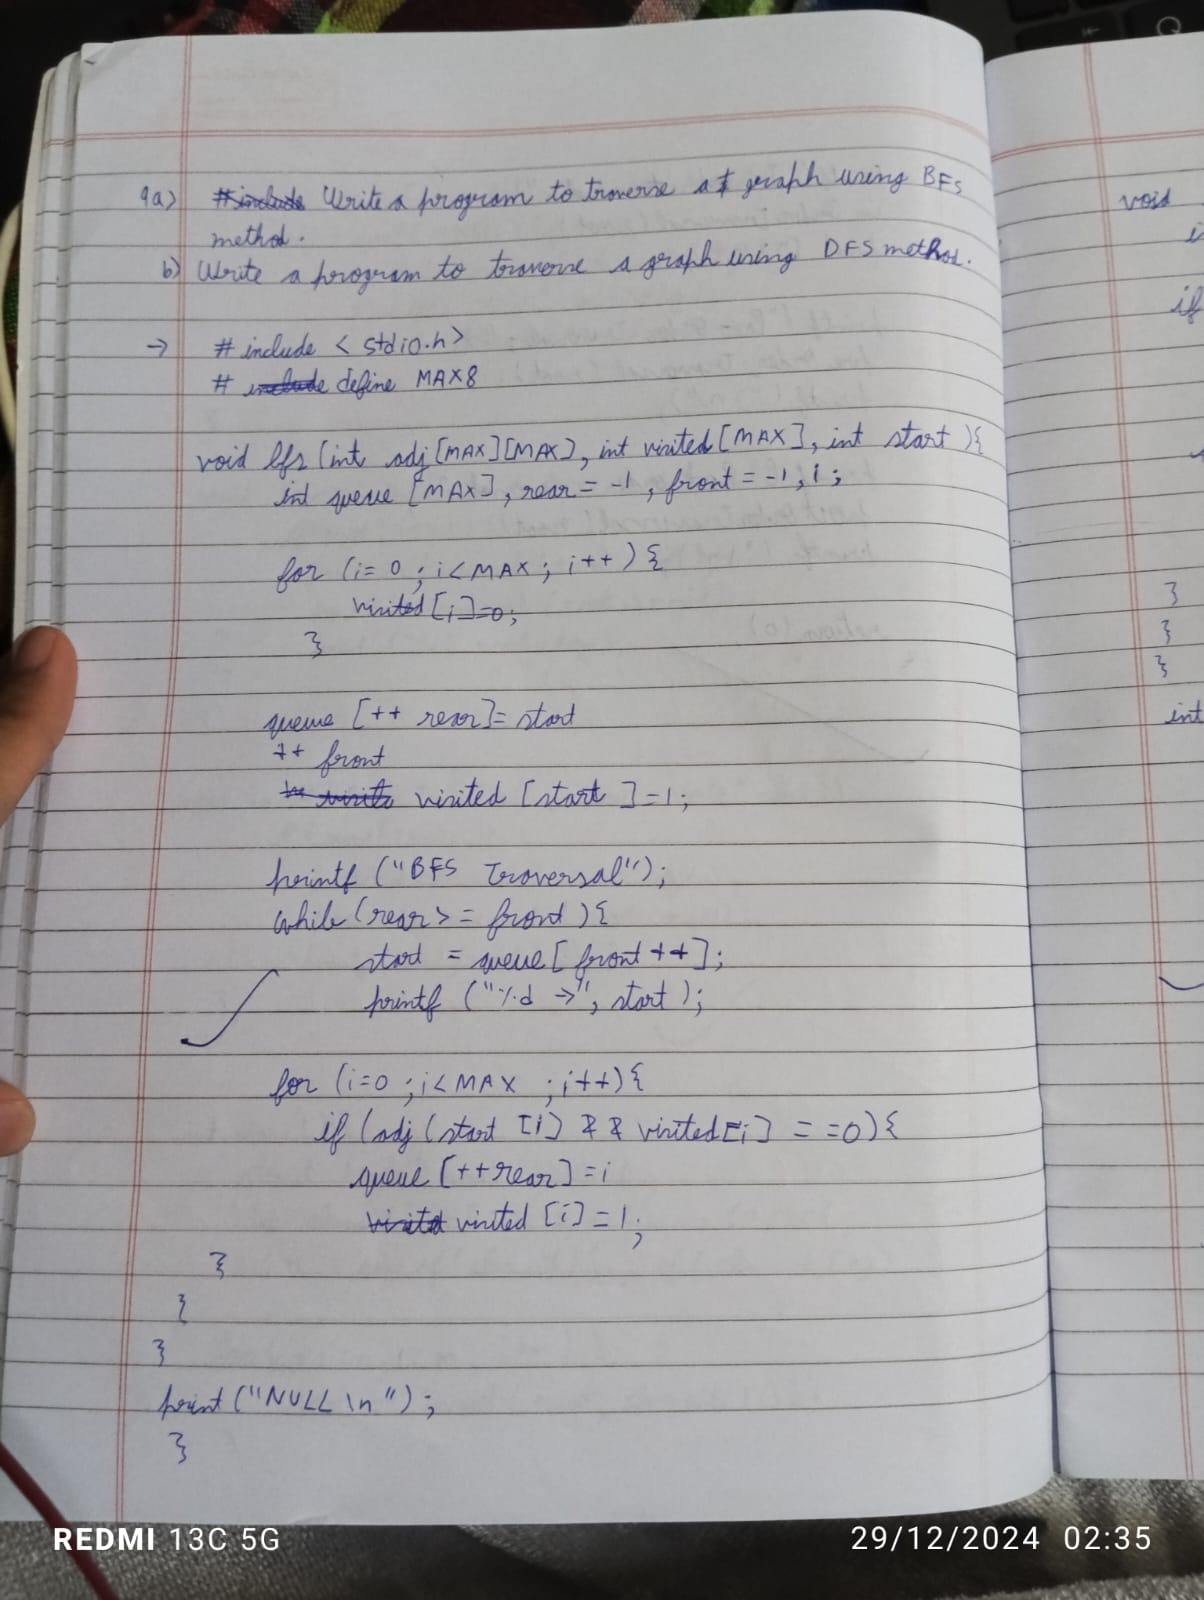 9a) Write a program to traverse a graph using BFS
method.
b) Write a program to traverse a graph using DFS method.
→ # include < stdio.h>
# define MAX8
void bfs (int adj[MAX][MAX], int visited[MAX], int start ){
int queue [MAX], rear = -1, front = -1, i ;
for (i= 0 ; i<MAX ; i++ ) {
visited [i]=0;
}
queue [++ rear]= start
++ front
visited [start ]=1;
printf ("BFS Traversal");
while (rear >= front ) {
start = queue [ front ++];
printf ("%d →", start );
for (i=0 ; i<MAX ; i++){
if (adj (start [i] && visited[i] = =0){
queue [++rear] = i
visited [i] = 1;
}
}
}
print ("NULL \n ") ;
}
void
if
}
}
}
int
REDMI 13C 5G
29/12/2024 02:35